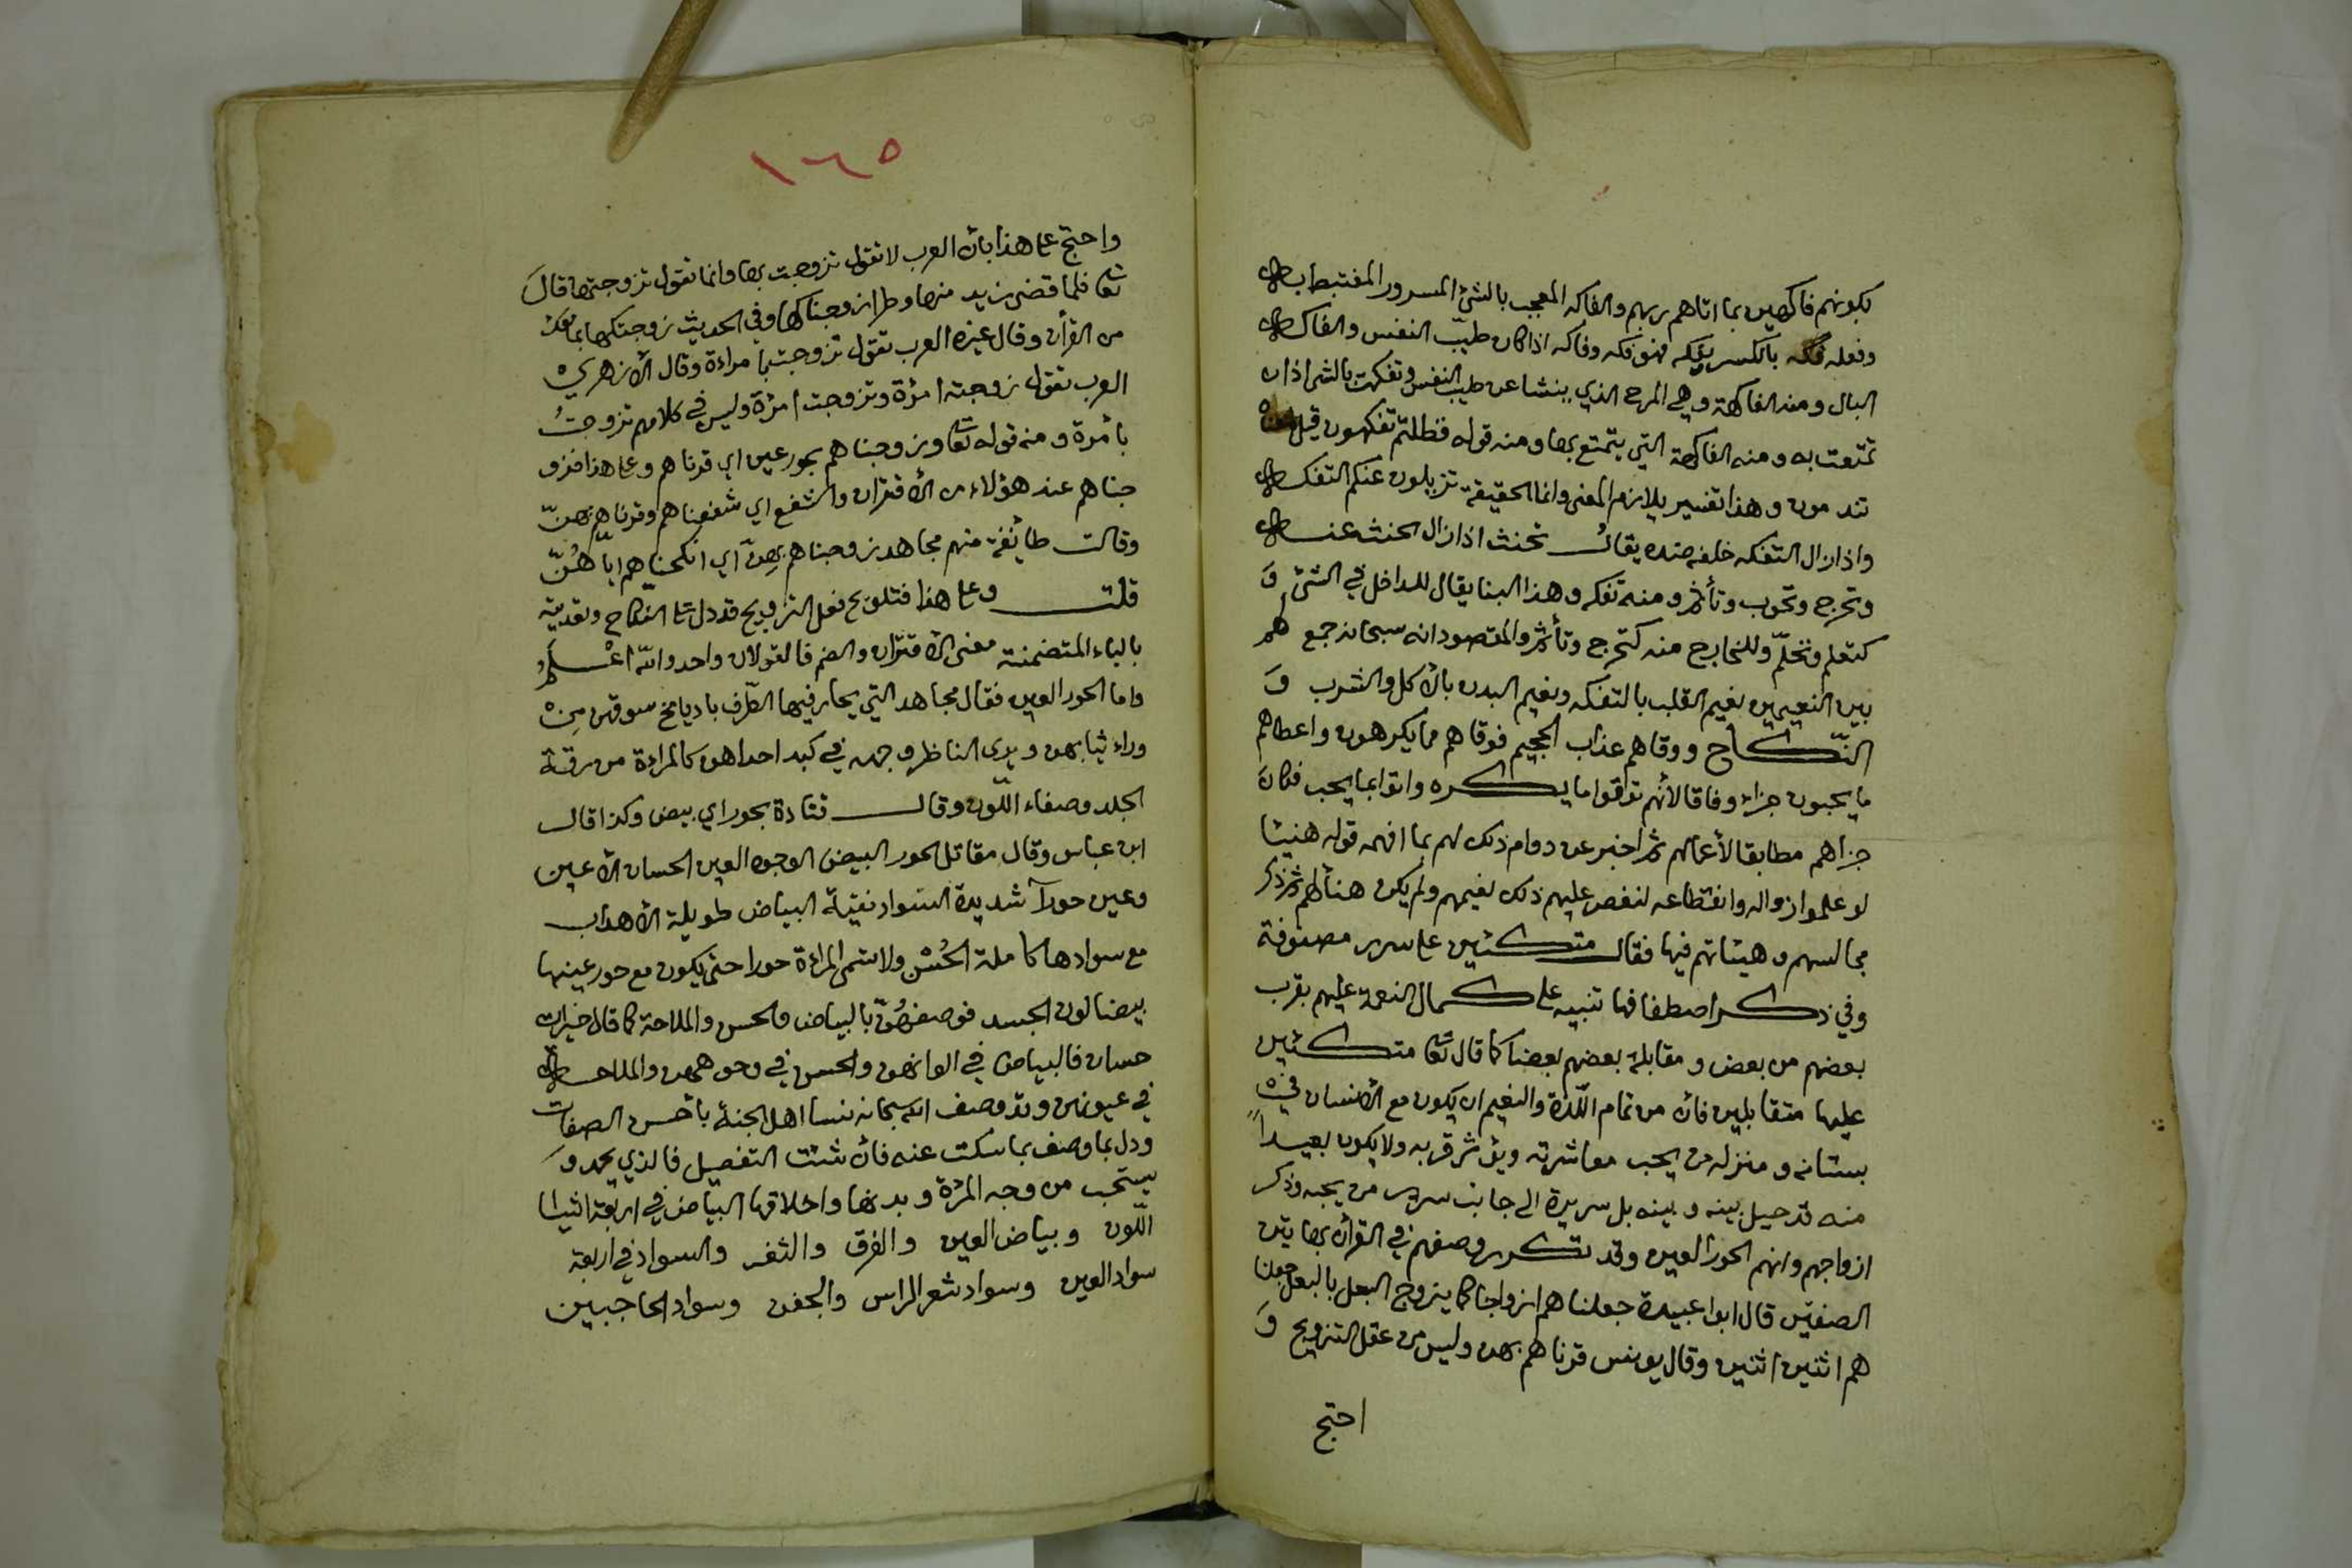 بكونهم فاكهين بما اتاهم ربهم والفاكه المعجب بالشئ المسرور المغتبط به
وفعله فكه بالكسر يفكه فهو فكه وفاكه اذا كان طيّب النفس والفاكه
البال ومنه الفاكهة وهي المرح الذي ينشا عن طيب النفس وتفكهت بالشئ اذا
تمتعت به ومنه الفاكهة التي يتمتع بها ومنه قوله فظلتم تفكهون قيل معناه
تندمون وهذا تفسير بلازم المعنى وانما الحقيقة تزيلون عنكم التفكه
واذا زال التفكه خلفه ضده يقال تحنث اذا زال الحنث عنه
وتحرج وتحوب وتأثم ومنه تفكه وهذا البنا يقال للداخل في الشئ وَ
كتعلم وتحلّم وللخارج منه كتحرج وتأثم والمقصود انه سبحانه جمع لهم
بين النعيمين نعيم القلب بالتفكه ونعيم البدن بالأكل والشرب وَ
النّكاح ووقاهم عذاب الجحيم فوقاهم مما يكرهون واعطاهم
ما يحبون جزاء وفاقا لأنهم توقوا ما يكره واتوا بما يحب فكانَ
جزاهم مطابقا لأعمالهم ثم اخبر عن دوام ذلك لهم بما افهمه قوله هنيئا
لو علموا زواله وانقطاعه لنغص عليهم ذلك نعيمهم ولم يكن هنأ لهم ثم ذكر
مجالسهم وهيئاتهم فيها فقال متكئين على سرر مصفوفة
وفي ذكر اصطفافها تنبيه على كمال النعمة عليهم بقرب
بعضهم من بعض ومقابلة بعضهم بعضا كما قال تعا متكئين
عليها متقابلين فان من تمام اللّذة والنعيم ان يكون مع الأنسان في
بستانه ومنزله من يحب معاشرته ويؤثر قربه ولا يكون بعيداً
منه قد حيل بينه وبينه بل سريره الى جانب سرير من يحبه وذكر
ازواجهم وانهم الحور العين وقد تكرر وصفهم في القرآن بهاتين
الصفتين قال ابوا عبيدة جعلناهم ازواجا كما يزوج البعل بالبعل جعلنا
هم اثنين اثنين وقال يونس قرناهم بهن وليس من عقل التزويج وَ
احتج
١٦٥
واحتج على هذا بان العرب لا تقول تزوجت بها وانما تقول تزوجتها قالَ
تعا فلما قضى زيد منها وطرا زوجناكها وفي الحديث زوجتكها بما معك
من القرأن وقال غيره العرب تقول تزوجت بامراءة وقال الأزهري
العرب تقول زوجته امرُة وتزوجت امرُة وليس في كلامهم تزوجتُ
بأمرة ومنه قوله تعا وزوجناهم بحور عين اي قرناهم وعلى هذا فزو
جناهم عند هؤلاء من الأقتران والشفع اي شفعناهم وقرناهم بهنّ
وقالت طائفة منهم مجاهد زوجناهم بهنّ اي انكحناهم ايّاهُنّ
قلت وعلى هذا فتلويح فعل التزويج قد دل على النكاح وتعديته
بالباء المتضمنة معنى الأقتران والضم فالقولان واحد والله اعْلَمُ
واما الحور العين فقال مجاهد التي يحار فيها الطّرف باديا مخ سوقهن مِن
وراء ثيابهن ويرى الناظر وجهه في كبد احداهن كالمراءة من رقة
الجلد وصفاء اللّون وقال قتادة بحور اي بيض وكذا قال
ابن عباس وقال مقاتل الحور البيض الوجوه العين الحسان الأعين
وعين حورآ شديدة السواد نقيّة البياض طويلة الأهداب
مع سوادها كاملة الحُسْن ولا تسمى المراءة حورا حتى يكون مع حور عينها
بيضا لون الجسد فوصفهُنّ بالبياض والحسن والملاحة كما قال خيرات
حسان فالبياض في الوانهن والحسن في وجوههن والملاحة
في عيونهن وقد وصف الله سبحانه نسا اهل الجنة بأحسن الصفات
ودل بما وصف بما سكت عنه فأن شئت التفصيل فالذي يحمد وَ
يستحب من وجه المرْة وبدنها واخلاقها البياض في اربعة اشيا
اللّون وبياض العين والفرق والثغر والسواد في اربعة
سواد العين وسواد شعر الراس والجفن وسواد الحاجبين